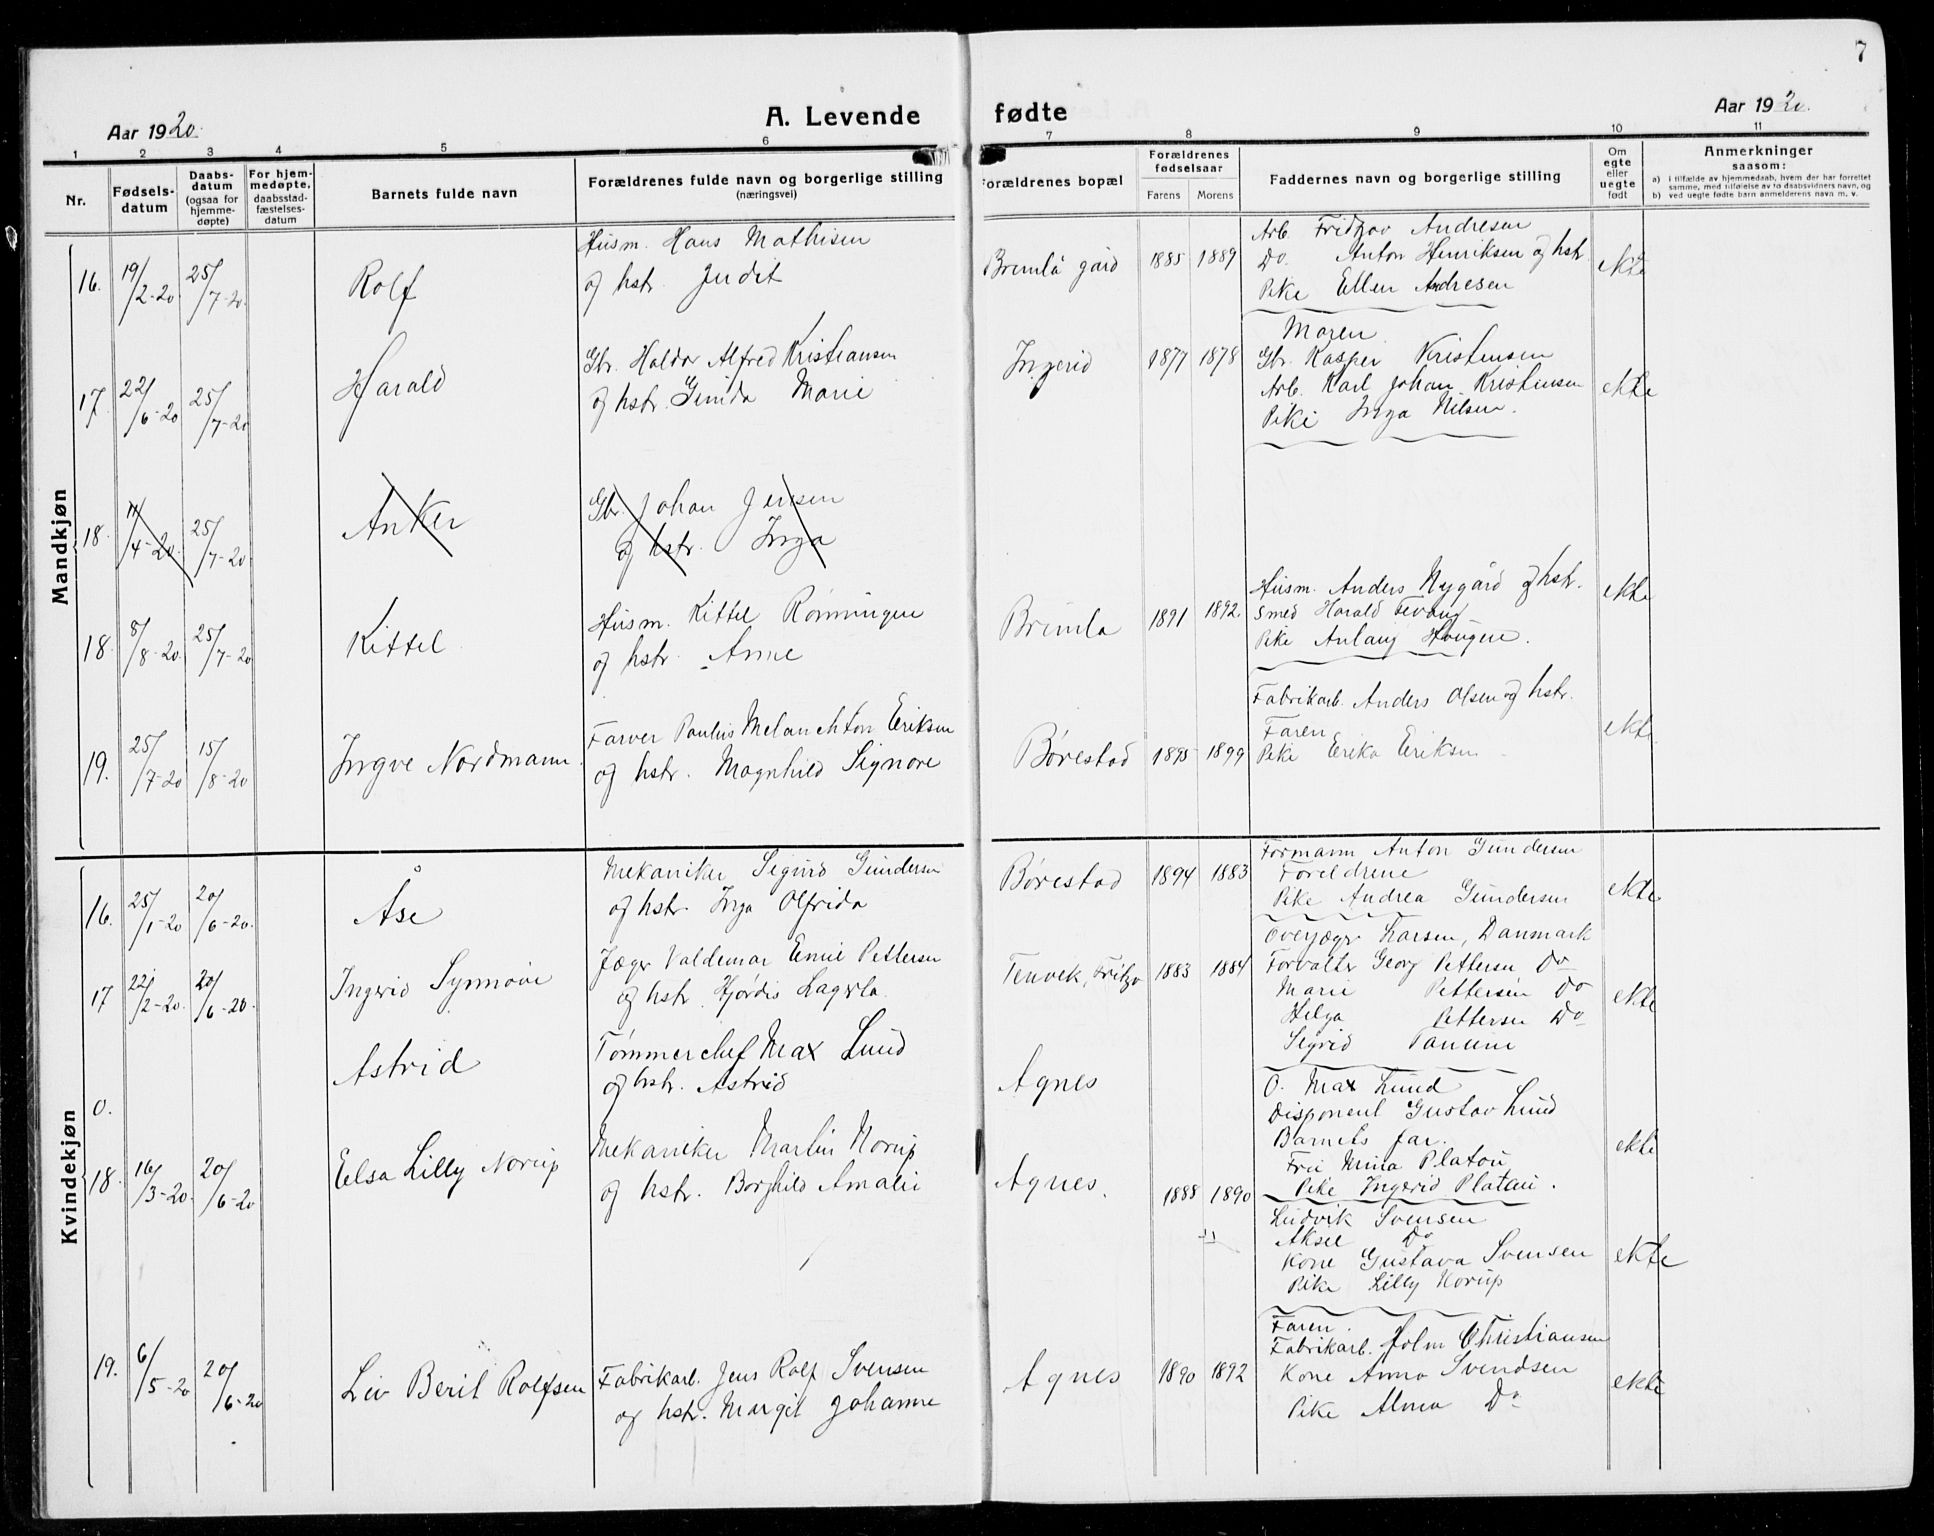 7
Aar 1920.
A. Levende fødte
Aar 1920.
1 2 3 4 5 6 7 8 9 10 11
Nr.
Fødsels-
datum
Daabs-
datum
(ogsaa for
hjemme-
døpte)
For hjem-
medøpte,
daabsstad-
fæstelses-
datum
Barnets fulde navn
Forældrenes fulde navn og borgerlige stilling
(næringsvei)
Forældrenes bopæl
Forældrenes
fødselsaar
Farens Morens
Faddernes navn og borgerlige stilling
Om
egte
eller
uegte
født
Anmerkninger
saasom:
a) i tilfælde av hjemmedaab, hvem der har forrettet
samme, med tilføielse av to daabsvidners navn, og
b) ved uegte fødte barn anmelderens navn m. v.
Mandkjøn
16. 19/2-20 25/7-20. Rolf
Husm. Hans Mathisen
og hstr. Judit
Bremlå gård 1885 1889
Arb. Fridtjov Andresen
Do. Anton Henriksen og hstr.
Pike Ellen Andresen
ekte
17. 22/6-20 25/7-20 Harald
Gbr. Haldor Alfred Kristiansen
og hstr. Gunda Marie
Ingerid 1877 1878
Moren
Gbr. Kasper Kristensen
Arb. Karl Johan Kristensen
Pike Inga Nilsen.
ekte
18. 11/4-20. 25/7-20 Anker
Gbr. Johan Jensen
og hstr. Inga
18. 5/8-20. 25/7-20 Kittel
Husm. Kittel Rønningen
og hstr. Anne
Bremla 1891 1892.
Husm. Anders Nygård og hstr.
Smed Harald Tevang
Pike Aslaug Haugen.
ekte
19. 25/7-20 15/8-20 Ingve Nordmann.
Farver Paulus Melanchton Eriksen
og hstr. Magnhild Signore
Børestad 1895 1899
Fabrikarb. Anders Olsen og hstr.
Faren
Pike Erika Eriksen
ekte
Kvindekjøn
16. 25/1-20 20/6-20. Åse
Mekaniker Sigurd Gundersen
og hstr. Inga Olfrida
Børestad 1894 1883
Formann Anton Gundersen
Foreldrene
Pike Andrea Gundersen
ekte
17 22/2-20. 20/6-20. Ingerid Synnøve
Jæger Valdemar Emil Pettersen
og hstr. Hjørdis Lagerla
Tenvik, Fritzø 1883 1884
Overjæger Larsen, Danmark
Forvalter Georg Pettersen Do
Marie Pettersen Do
Helga Pettersen Do
Sigrid Tanum
ekte
0. Astrid
Tømmerchef Max Lund
og hstr. Astrid
Agnes
O. Max Lund
Disponent Gustav Lund
Barnets far.
Fru Mina Platou
Pike Ingerid Platou.
ekte
18. 16/3-20. 20/6-20 Elsa Lilly Norup
Mekaniker Martin Norup
og hstr. Borghild Amalie
Agnes. 1888 1890
Ludvik Svensen
Aksel Do
Kone Gustava Svensen
Pike Lilly Norup
ekte
19. 6/5-20 20/6-20 Liv Berit Rolfsen
Fabrikarb. Jens Rolf Svensen
og hstr. Margit Johanne
Agnes 1890 1892
Faren.
Fabrikarb. Holm Christiansen
Kone Anna Svendsen
Pike Alma Do
ekte